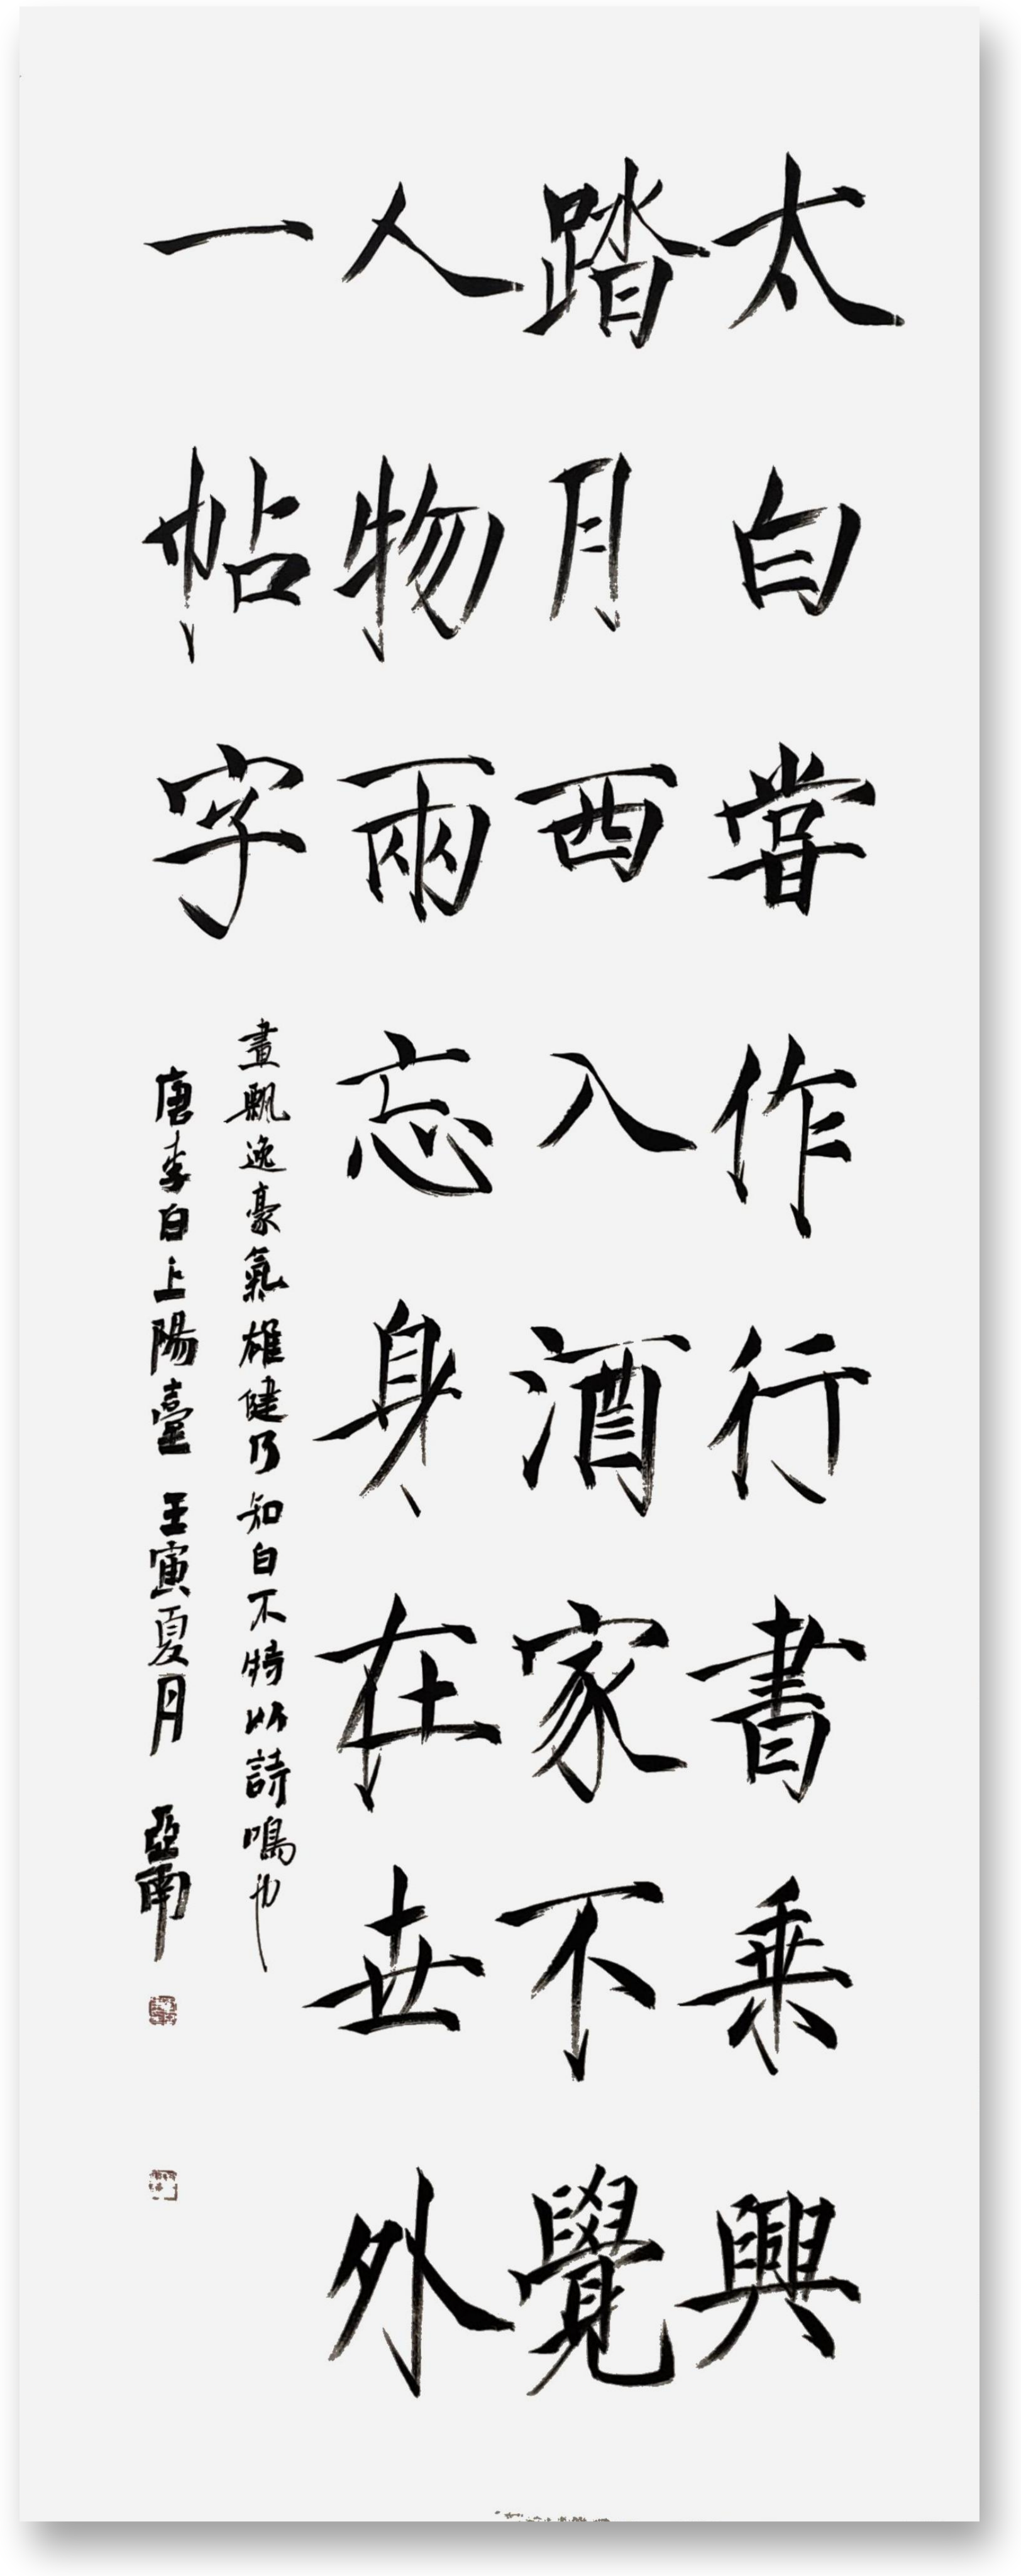 太白嘗作行書乘興
踏月西入酒家不覺
人物兩忘身在世外
一帖字
畫飄逸豪氣雄健乃知白不特以詩鳴也
唐李白上陽臺 壬寅夏月 亞南